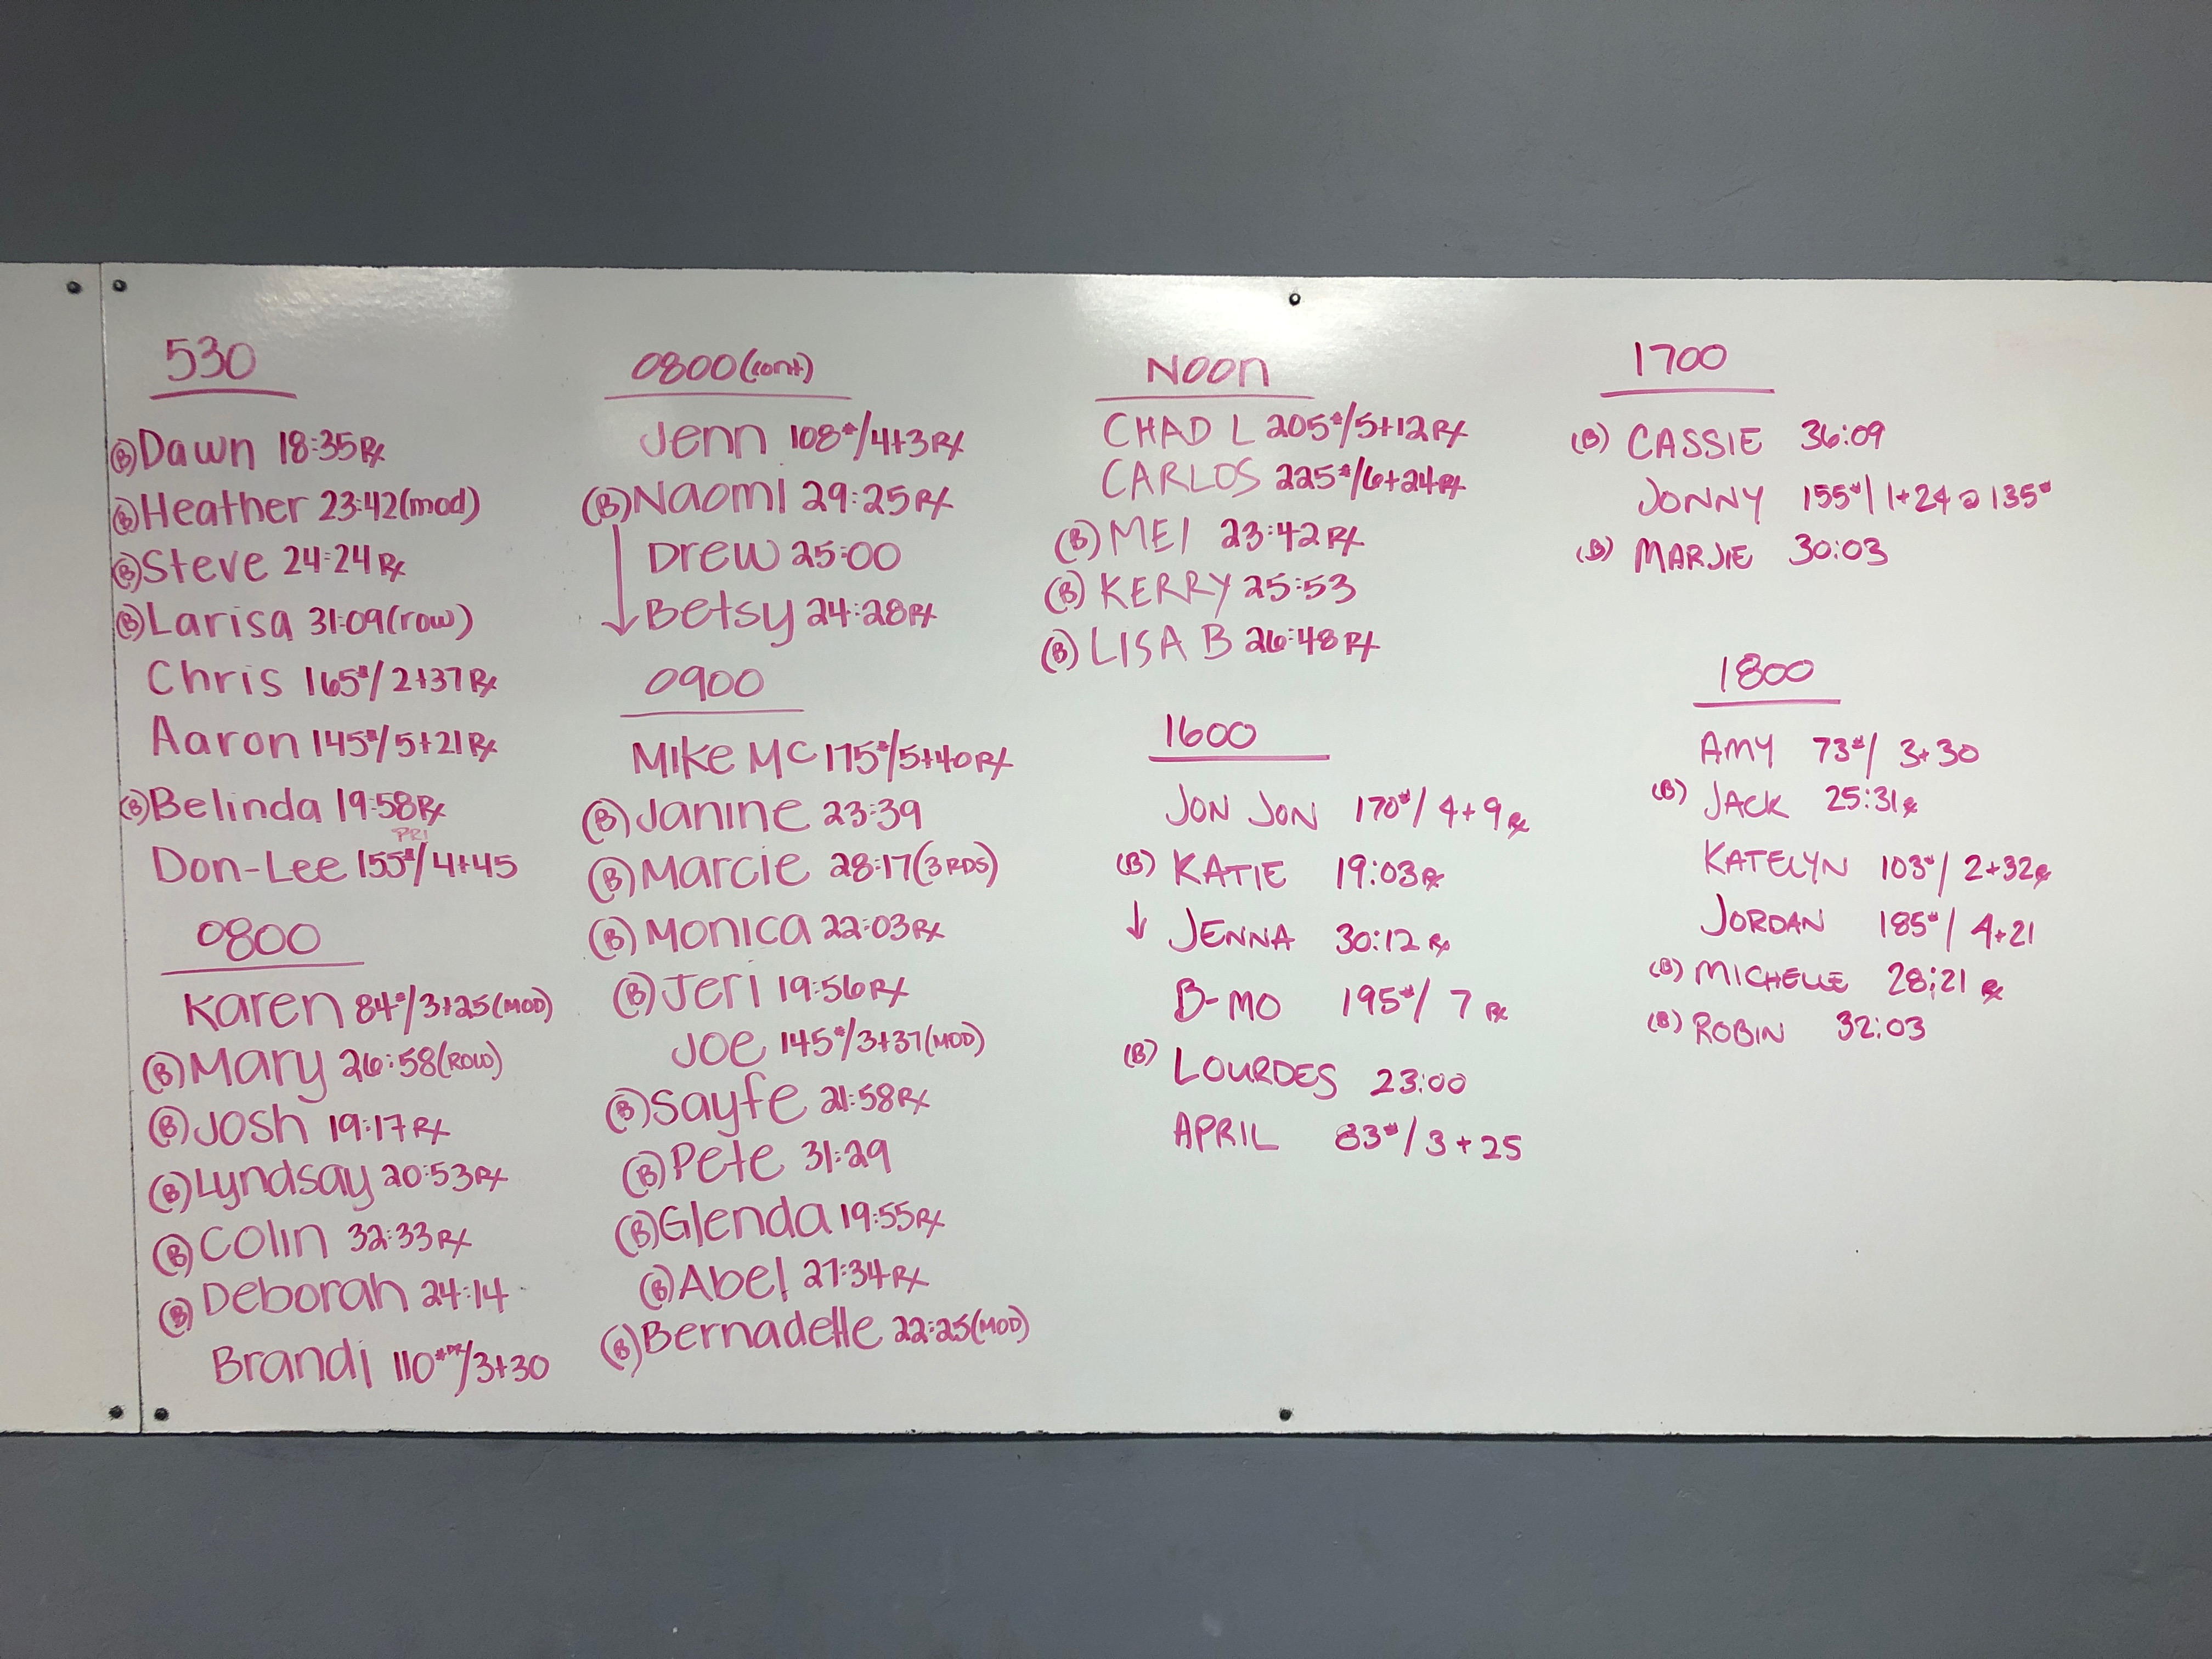 530
(B) Dawn 18:35 Rx
(B) Heather 23:42 (mod)
(B) Steve 24:24 Rx
(B) Larisa 31:09 (row)
Chris 165#/2+37 Rx
Aaron 145#/5+21 Rx
(B) Belinda 19:58 Rx
PR!
Don-Lee 155#/4+45
0800
Karen 84#/3+25 (MOD)
(B) Mary 26:58 (ROW)
(B) Josh 19:17 Rx
(B) Lyndsay 20:53 Rx
(B) Colin 32:33 Rx
(B) Deborah 24:14
Brandi 110# PR/3+30
0800 (cont)
Jenn 108#/4+3 Rx
(B) Naomi 29:25 Rx
Drew 25:00
↓ Betsy 24:28 Rx
0900
Mike Mc 175#/5+40 Rx
(B) Janine 23:39
(B) Marcie 28:17 (3 RDS)
(B) Monica 22:03 Rx
(B) Jeri 19:56 Rx
Joe 145#/3+37 (MOD)
(B) Sayfe 21:58 Rx
(B) Pete 31:29
(B) Glenda 19:55 Rx
(B) Abel 27:34 Rx
(B) Bernadette 22:25 (MOD)
NOON
CHAD L 205#/5+12 Rx
CARLOS 225#/6+24 Rx
(B) MEI 23:42 Rx
(B) KERRY 25:53
(B) LISA B 26:48 Rx
1600
JON JON 170#/ 4+9 Rx
(B) KATIE 19:03 Rx
↓ JENNA 30:12 Rx
B-MO 195#/ 7 Rx
(B) LOURDES 23:00
APRIL 83#/ 3+25
1700
(B) CASSIE 36:09
JONNY 155#/ 1+24 @ 135#
(B) MARJIE 30:03
1800
AMY 73#/ 3+30
(B) JACK 25:31 Rx
KATELYN 103#/ 2+32 Rx
JORDAN 185#/ 4+21
(B) MICHELLE 28:21 Rx
(B) ROBIN 32:03